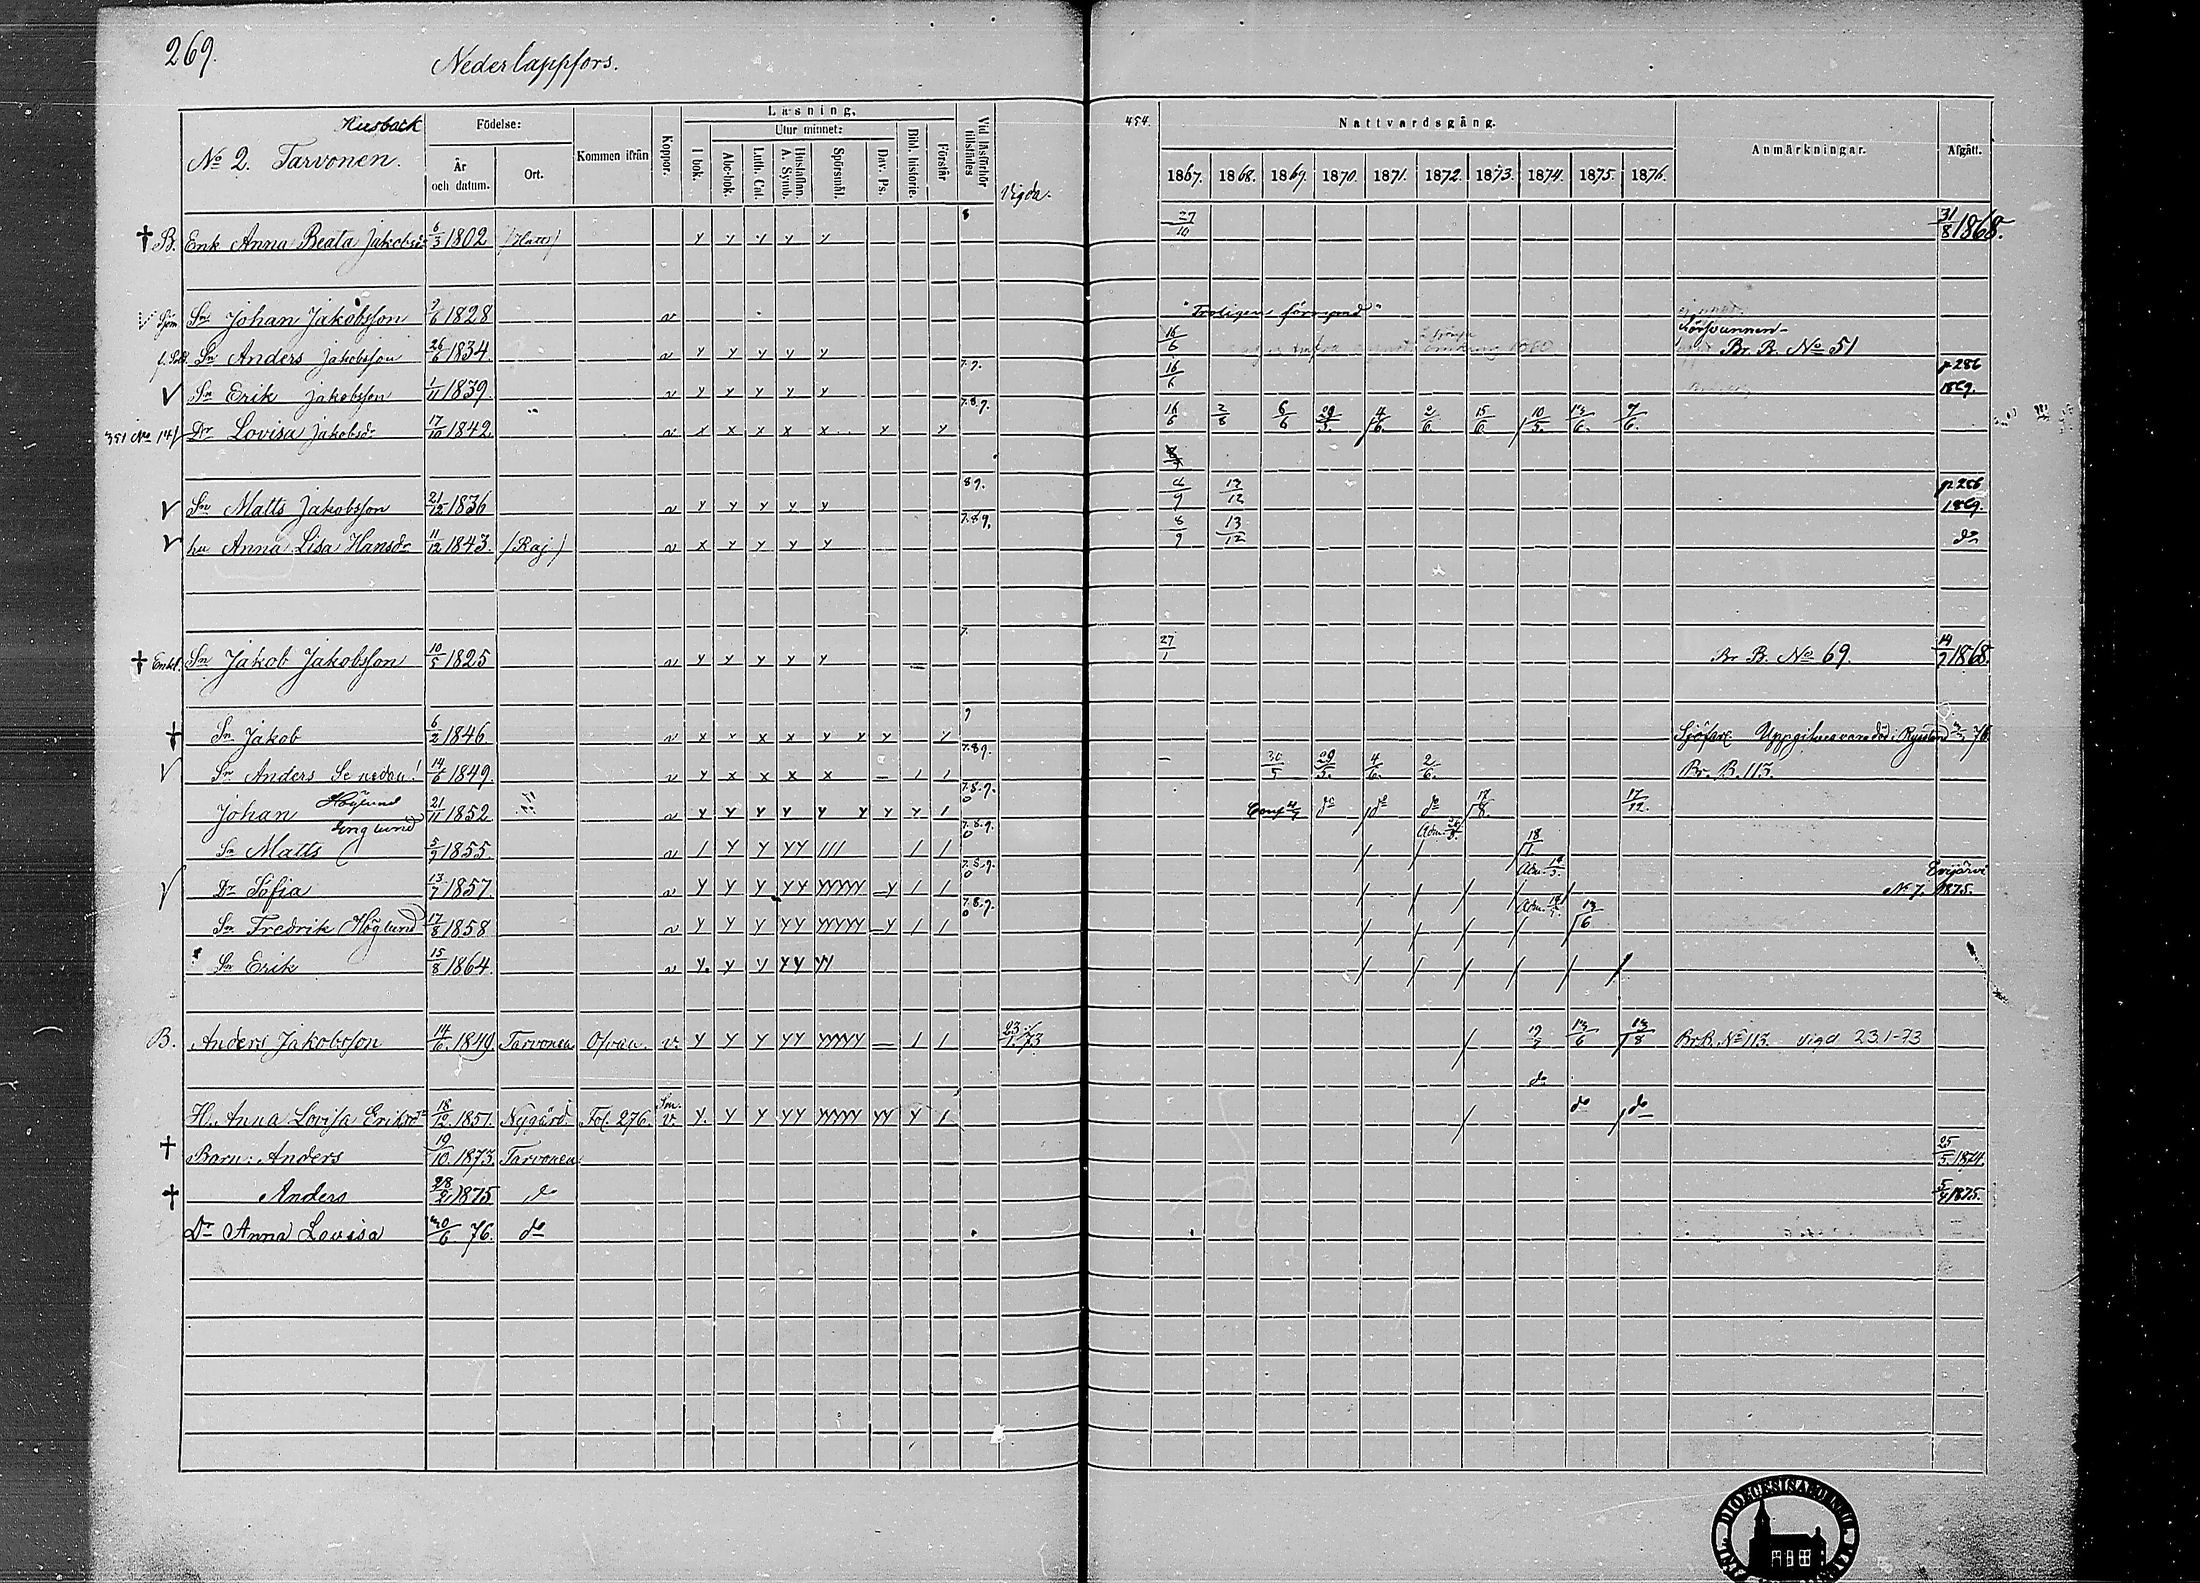 269.
Nederlappfors.
Husback
No 2. Tarvonen.
Födelse:
År och datum.
Ort.
Kommen ifrån
Koppor.
Läsning,
I bok.
Utur minnet:
Abc-bok.
Luth. Cat.
Hustaflan. A. Symb.
Spörsmål.
Dav. Ps.
Bibl. historie.
Förstår
Vid läsförhör tillstädes
Vigda.
454.
Nattvardsgång.
1867. 1868. 1869. 1870. 1871. 1872. 1873. 1874. 1875. 1876.
Anmärkningar.
Afgått.
† B. Enk Anna Beata Jakobsdr 6/3 1802 y y y y y 8 27/10 31/8 1868.
Sn Johan Jakobsson 2/6 1828 v "Troligen förrymd" Försvunnen
Sn Anders Jakobsson 26/6 1834 v y y y y y 16/6 Br. B. No 51
Sn Erik Jakobsson 1/11 1839 v y y y y y 7.9. 16/6 p 286 1869.
351 No 14 Dr Lovisa Jakobsdr 17/10 1842 v x x x x x y y 7.8.9. 16/6 2/8 6/6 29/5 4/6 2/6 15/6 10/5 13/6 7/6
Sn Matts Jakobsson 21/12 1836 v y y y y y 8 9. 8/9 13/12 p 286 1869.
hu Anna Lisa Hansdr 11/12 1843 (Raj) v x y y y y 7.8.9. 8/9 13/12 do
† Enkl. Sn Jakob Jakobsson 10/5 1825 v y y y y y 7. 27/1 Br B. No 69. 14/9 1868.
† Sn Jakob 6/2 1846 v x x x x y y y y 9 Sjöfare Uppgifves vara död i Ryssland 76
Sn Anders Se nedan! 14/6 1849 v y x x x x — / / 7.8.9. 30/5 29/5 4/6 2/6 Br. B. 113.
Johan Höglund 21/11 1852 v y y y y y y y y / 7.8.9. 0 do do do 17/8 17/12
Sn Matts Englund 5/9 1855 v / y y yy /// / / 7.8.9. 0 18/7
Dr Sofia 13/7 1857 v y y y yy yyyyy — y / / 7.8.9. 0 No 7. Evijärvi 1875.
Sn Fredrik Höglund 17/8 1858 v y y y yy yyyyy — y / / 7.8.9. 0 13/6
Sn Erik 15/8 1864 v y. y y yy yy
B. Anders Jakobsson 14/6 1849 Tarvonen Ofvan. v. y y y yy yyyyy — / / 23/1 73 13/6 13/8 Br B. No 113. vigd 23.1-73
H. Anna Lovisa Eriksdr 18/12 1851. Nygård. Fol. 276 v. y. y y yy yyyyy yy y / do do do
† Barn: Anders 19/10. 1873. Tarvonen 25/5. 1874.
† Anders 28/2 1875 do 5/4 1875.
Dr Anna Lovisa 30/6 76. do
DIOECESIS